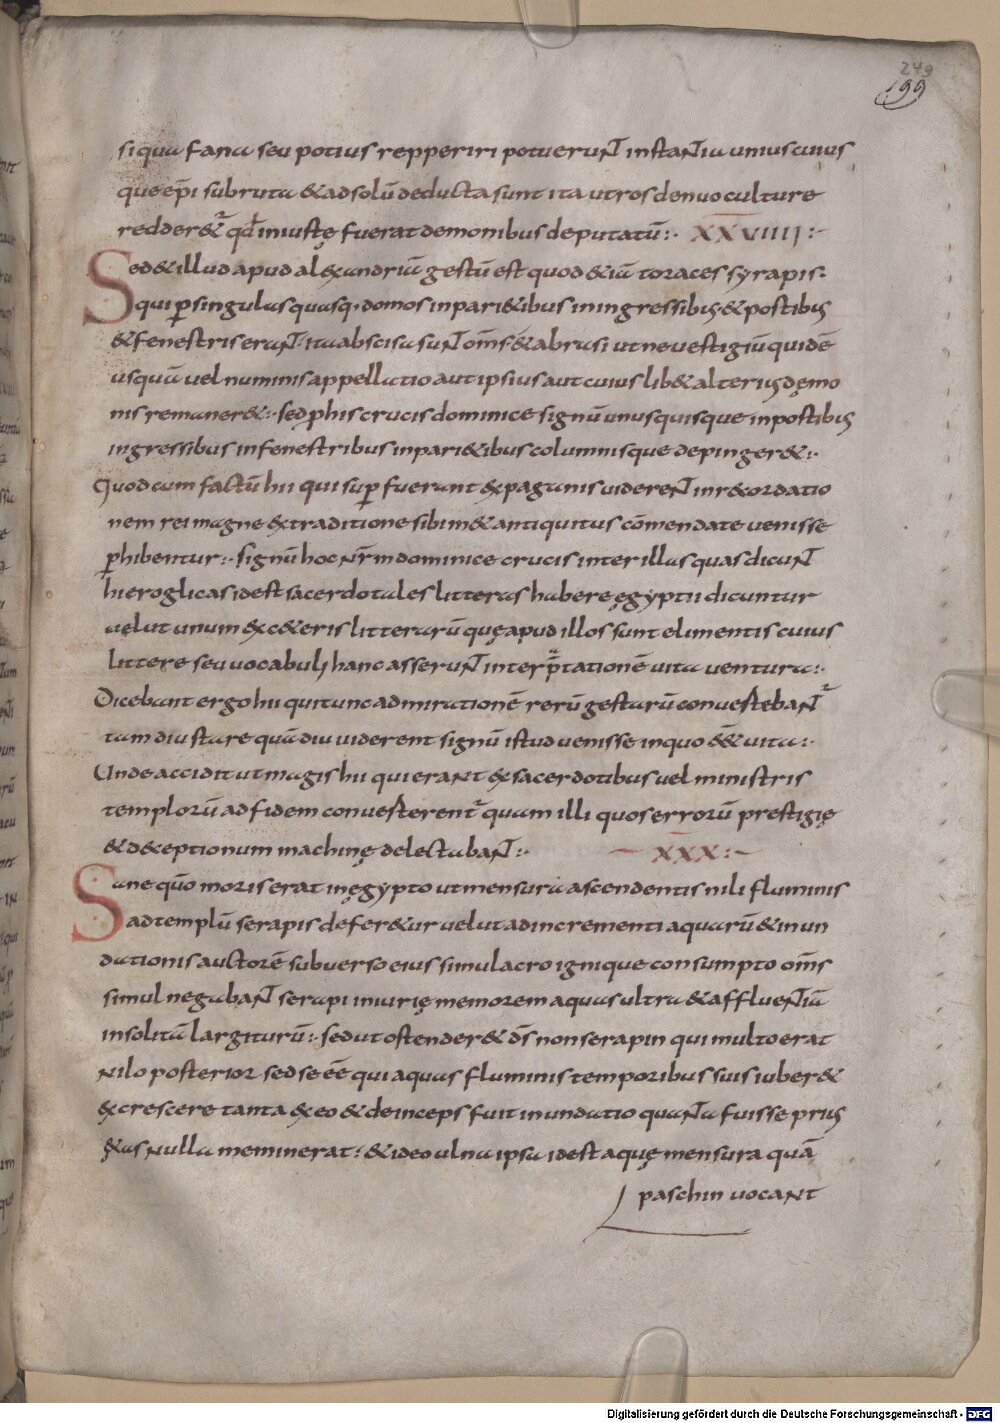 249
199
siqua fana seu potius repperiri potuerunt instantia unius cuius
que ep̅i subruta & ad solū deducta sunt ita ut ros denuo culture
redder& qđ iniustę fuerat demonibus deputatū:· XXVIIII:-
Sed & illud apud alexandriā gestū est quod &iā toraces syrapis·
qui ꝑ singulas quasq· domos in pari&ibus in ingressibus & postibus
& fenestris erant· ita abscisa sunt om̅s & abrasi ut ne uestigiū quidē
usquā uel numinis appellatio aut ipsius aut cuiuslib& alterius dęmo
nis remaner&:· sed ꝑ his crucis dominice signū unusquisque in postibus
ingressibus in fenestribus in pari&ibus columnisque depinger&:·
Quod cum factū hii qui suꝑfuerunt ex paganis uiderent in r&ordatio
nem rei magne ex traditione sibim& antiquitus cōmendate uenisse
ꝑhibentur:· signū hoc nr̅m dominice crucis inter illas quas dicunt
hieroglicas id est sacerdotales litteras habere ęgyptii dicuntur
uelut unum ex c&eris litterarū quę apud illos sunt elimentis cuius
littere seu uocabuli hanc asserunt interp̅tationē uita uentura:·
Dicebant ergo hii qui tunc admirationē rerū gestarū conuestebant᷑
tam diu stare quādiu uiderent signū istud uenisse in quo ēē& uita:·
Unde accidit ut magis hii qui erant ex sacerdotibus uel ministris
templorū ad fidem conuesterent᷑ quam illi quos errorū prestigię
& d&eptionum machinę delectabant:· XXX:-
Sane quō moris erat in ęgypto ut mensura ascendentis nili fluminis
ad templū serapis defer&ur uelut ad incrementi aquarū & inun
dationis auctorē subuerso eius simulacro ignique consumpto om̅s
simul negabant serapi iniurię memorem aquas ultra & affluentiā
insolitā largiturū:· sed ut ostender& d̅s non serapin qui multo erat
nilo posterior sed se ēē qui aquas fluminis temporibus suis iuber&
excrescere tanta ex eo & deinceps fuit inundatio quanta fuisse prius
ętas nulla meminerat: & ideo ulna ipsa id est aquę mensura quā
paschin uocant
Digitalisierung gefördert durch die Deutsche Forschungsgemeinschaft - DFG